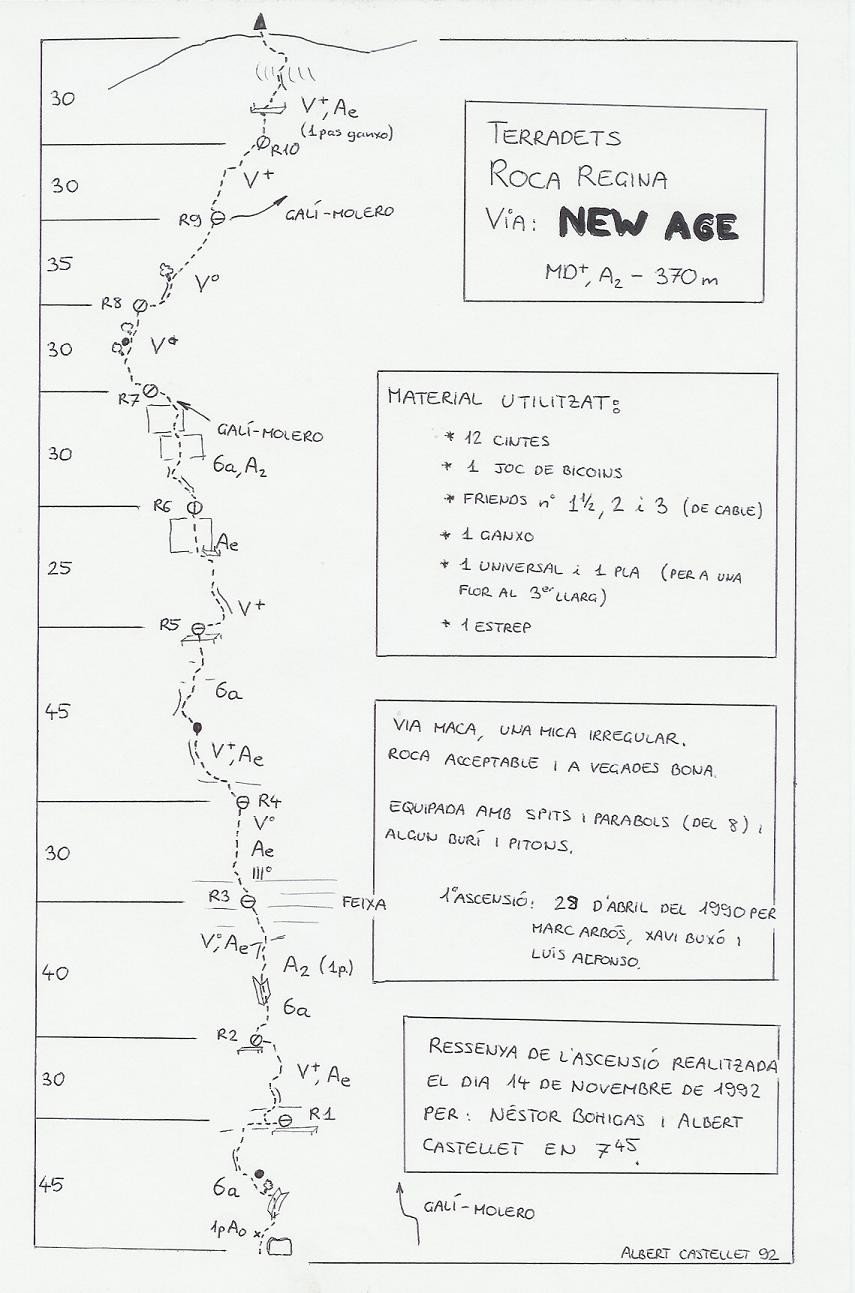 30
V+, Ae
(1 pas ganxo)
R10
30
V+
R9
GALÍ-MOLERO
35
Vº
R8
30
V+
R7
GALÍ-MOLERO
30
6a, A2
R6
Ae
25
V+
R5
6a
45
V+, Ae
R4
Vº
Ae
30
IIIº
R3
FEIXA
Vº, Ae
40
A2 (1p.)
6a
R2
30
V+, Ae
R1
45
6a
1pA0
TERRADETS
ROCA REGINA
VIA: NEW AGE
MD+, A2 - 370 m
MATERIAL UTILITZAT:
* 12 CINTES
* 1 JOC DE BICOINS
* FRIENDS nº 1½, 2 i 3 (DE CABLE)
* 1 GANXO
* 1 UNIVERSAL i 1 PLA (PER A UNA
FLOR AL 3er LLARG)
* 1 ESTREP
VIA MACA, UNA MICA IRREGULAR.
ROCA ACCEPTABLE I A VEGADES BONA.
EQUIPADA AMB SPITS I PARABOLS (DEL 8) I
ALGUN BURÍ I PITONS.
1ª ASCENSIÓ: 29 D'ABRIL DEL 1990 PER
MARC ARBÓS, XAVI BUXÓ I
LUÍS ALFONSO.
RESSENYA DE L'ASCENSIÓ REALITZADA
EL DIA 14 DE NOVEMBRE DE 1992
PER: NÉSTOR BOHIGAS I ALBERT
CASTELLET EN 7 45.
GALÍ-MOLERO
ALBERT CASTELLET 92